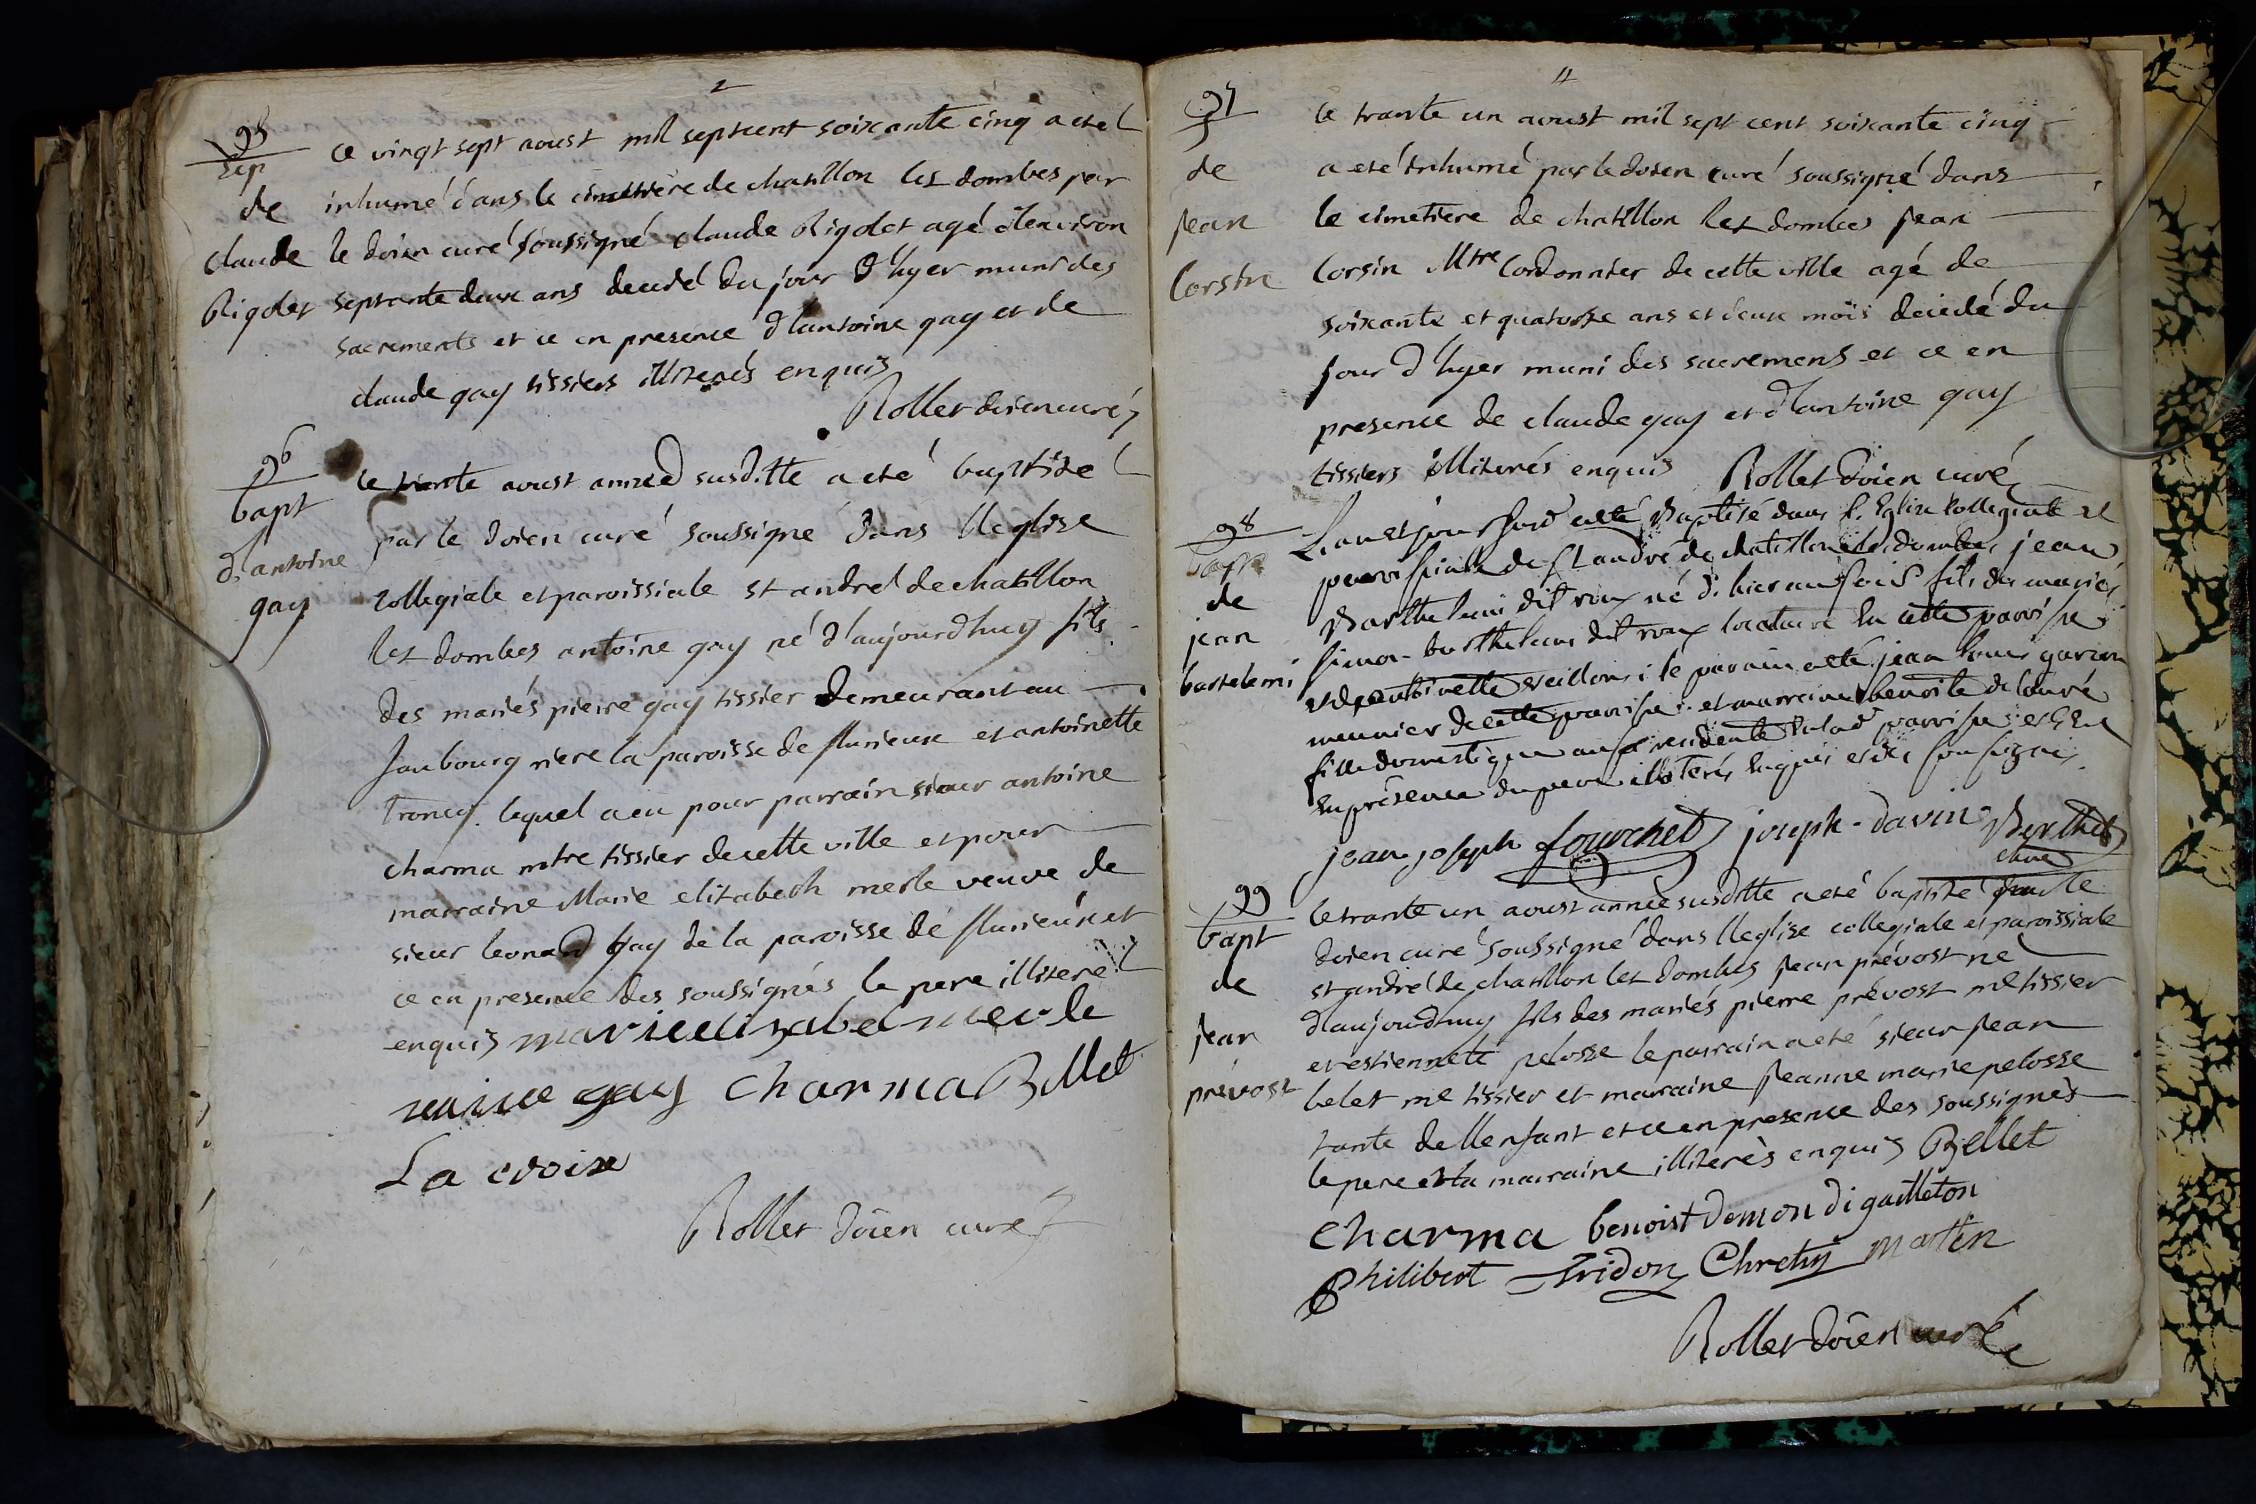 95
Sep
de
claude
Rigolet
ce vingt sept aoust mil septcent soixante cinq a eté
inhumé dans le cimetiere de chatillon les dombes par
le doien curé soussigné claude Rigolet agé d'lenviron
septante deux ans decedé du jour d'hyer muni des
sacrements et ce en presence d'lantoine gay et de
claude gay tissiers illiterés enquis
Rollet doien curé
96
bapt
d'antoine
gay
le trente aoust année susditte a eté baptisé
par le doien curé soussigné dans lleglise
collegiale et paroissiale st andré de chatillon
les dombes antoine gay né d'aujourdhuy fils
des mariés pierre gay tissier demeurant au
faubourg riere la paroisse de flurieux et antoinette
troncy lequel a eu pour parrain sieur antoine
charma mtre tissier de cette ville et pour
marraine Marie elizabeth merle veuve de
sieur leonard gay de la paroisse de flurieux et
ce en presence des soussignés le pere illiteré
enquis marie elizabel merle
gay charma Bellet
La croix
Rollet doien curé
97
S
de
jean
Corsin
le trante un aoust mil sept cent soixante cinq
a eté inhumé par le doien curé soussigné dans
le cimetiere de chatillon les dombes jean
Corsin Mtre Cordonnier de cette ville agé de
soixante et quatorze ans et deux mois decedé du
jour d'hyer muni des sacremens et ce en
presence de claude gay et d'lantoine gay
tissiers illiterés enquis Rollet doien curé
98
bapt
de
jean
bartelemi
L'an et jour susd a eté Baptisé dans l'Eglise Collegiale et
paroissiale de St andré de chatillon les dombes jean
Barthelemi dit roux né d'hier au soir fils des mariés
simon barthelemi dit roux locataire en cette paroisse
et d'antoinette le parain a eté jean louis garçon
meunier de cette paroisse et marraine benoite
fille domestique aussi residente paroisse et ce
en présence du pere illiterés enquis et des soussignés
jean joseph fourchet joseph davin Berthet
99
bapt
de
jean
prévost
le trante un aoust année susditte a eté baptisé par le
doien curé soussigné dans lleglise collegiale et paroissiale
st andré de chatillon les dombes jean prévost né
d'aujourdhuy fils des mariés pierre prévost me tissier
et estiennete pelosse le parrain a eté sieur jean
belet me tissier et marraine jeanne marie pelosse
tante de llenfant et ce en presence des soussignés
le pere et la marraine illiterés enquis Bellet
charma benoist demondi gailleton
Philibert Tridon Chretin martin
Rollet doien curé